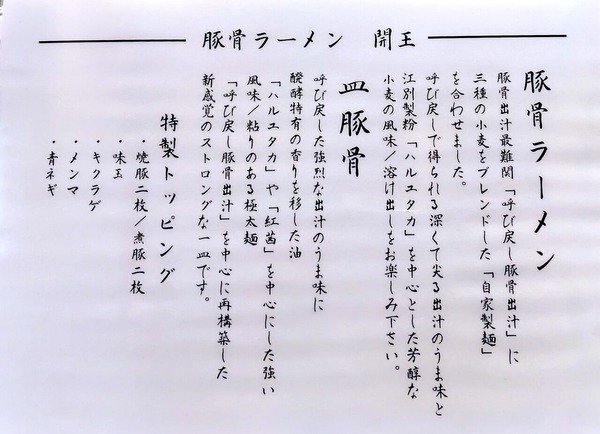 豚骨ラーメン 開王
豚骨ラーメン
豚骨出汁最難関「呼び戻し豚骨出汁」に
三種の小麦をブレンドした「自家製麺」
を合わせました。
呼び戻しで得られる深くて尖る出汁のうま味と
江別製粉「ハルユタカ」を中心とした芳醇な
小麦の風味/溶け出しをお楽しみ下さい。
皿豚骨
呼び戻した強烈な出汁のうま味に
醗酵特有の香りを移した油
「ハルユタカ」や「紅茜」を中心にした強い
風味/粘りのある極太麺
「呼び戻し豚骨出汁」を中心に再構築した
新感覚のストロングな一皿です。
特製トッピング
・焼豚二枚/煮豚二枚
・味玉
・キクラゲ
・メンマ
・青ネギ